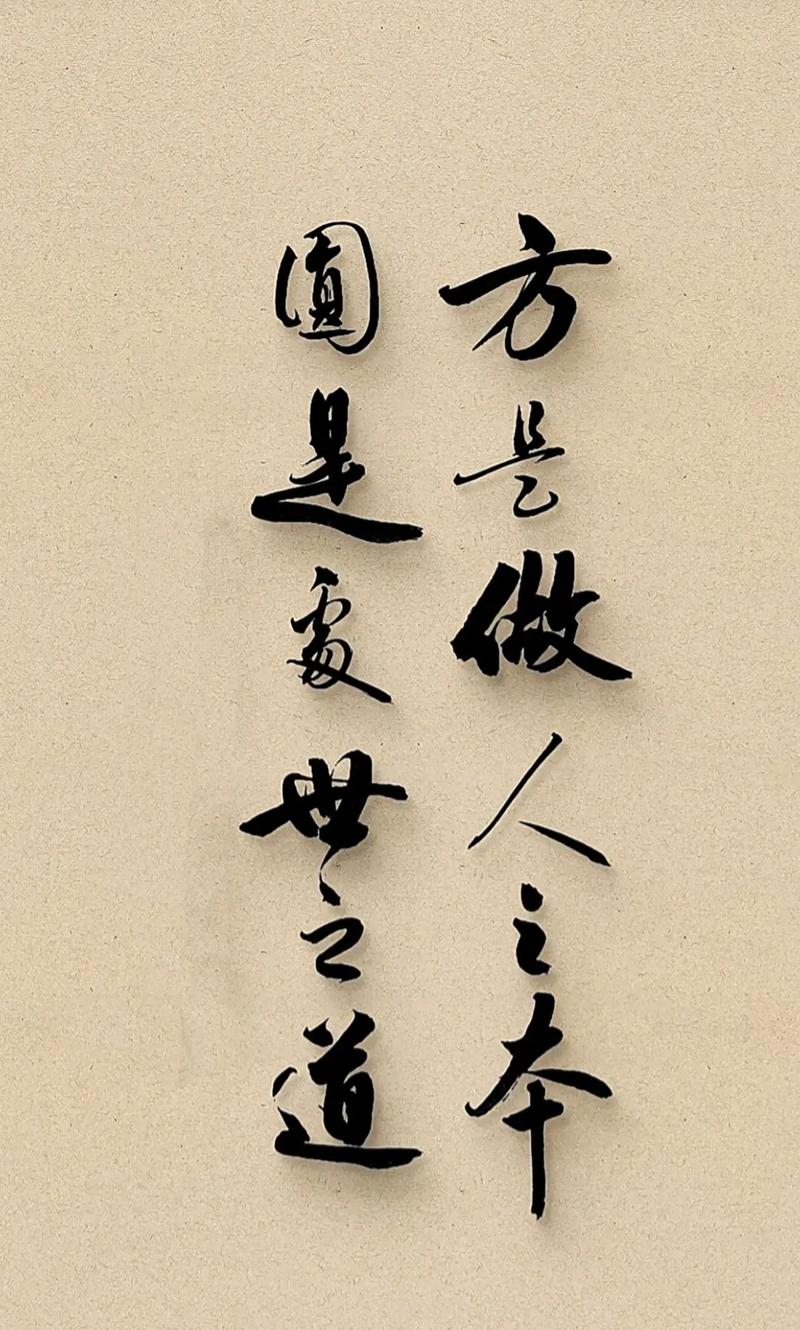 方是做人之本
圓是處世之道